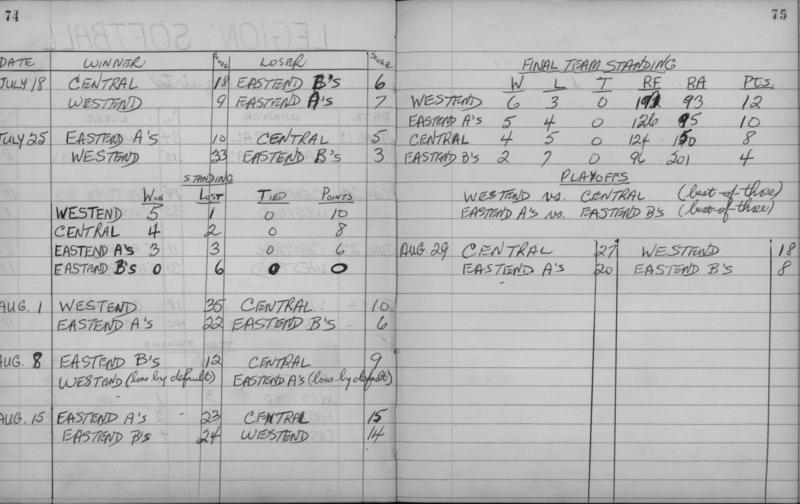 74
DATE WINNER Score LOSER Score
JULY 18 CENTRAL 18 EASTEND B's 6
WESTEND 9 EASTEND A's 7
JULY 25 EASTEND A's 10 CENTRAL 5
WESTEND 33 EASTEND B's 3
STANDING
WON LOST TIED POINTS
WESTEND 5 1 0 10
CENTRAL 4 2 0 8
EASTEND A's 3 3 0 6
EASTEND B's 0 6 0 0
AUG. 1 WESTEND 35 CENTRAL 10
EASTEND A's 22 EASTEND B's 6
AUG. 8 EASTEND B's 12 CENTRAL 9
WESTEND (loss by default) EASTEND A's (loss by default)
AUG. 15 EASTEND A's 23 CENTRAL 15
EASTEND B's 24 WESTEND 14
75
LEGION SOFTBALL
FINAL TEAM STANDING
W L T RF RA Pts.
WESTEND 6 3 0 93 12
EASTEND A's 5 4 0 126 95 10
CENTRAL 4 5 0 124 150 8
EASTEND B's 2 7 0 96 201 4
PLAYOFFS
WESTEND vs. CENTRAL (best-of-three)
EASTEND A's vs. EASTEND B's (best-of-three)
AUG. 29 CENTRAL 27 WESTEND 18
EASTEND A's 20 EASTEND B's 8